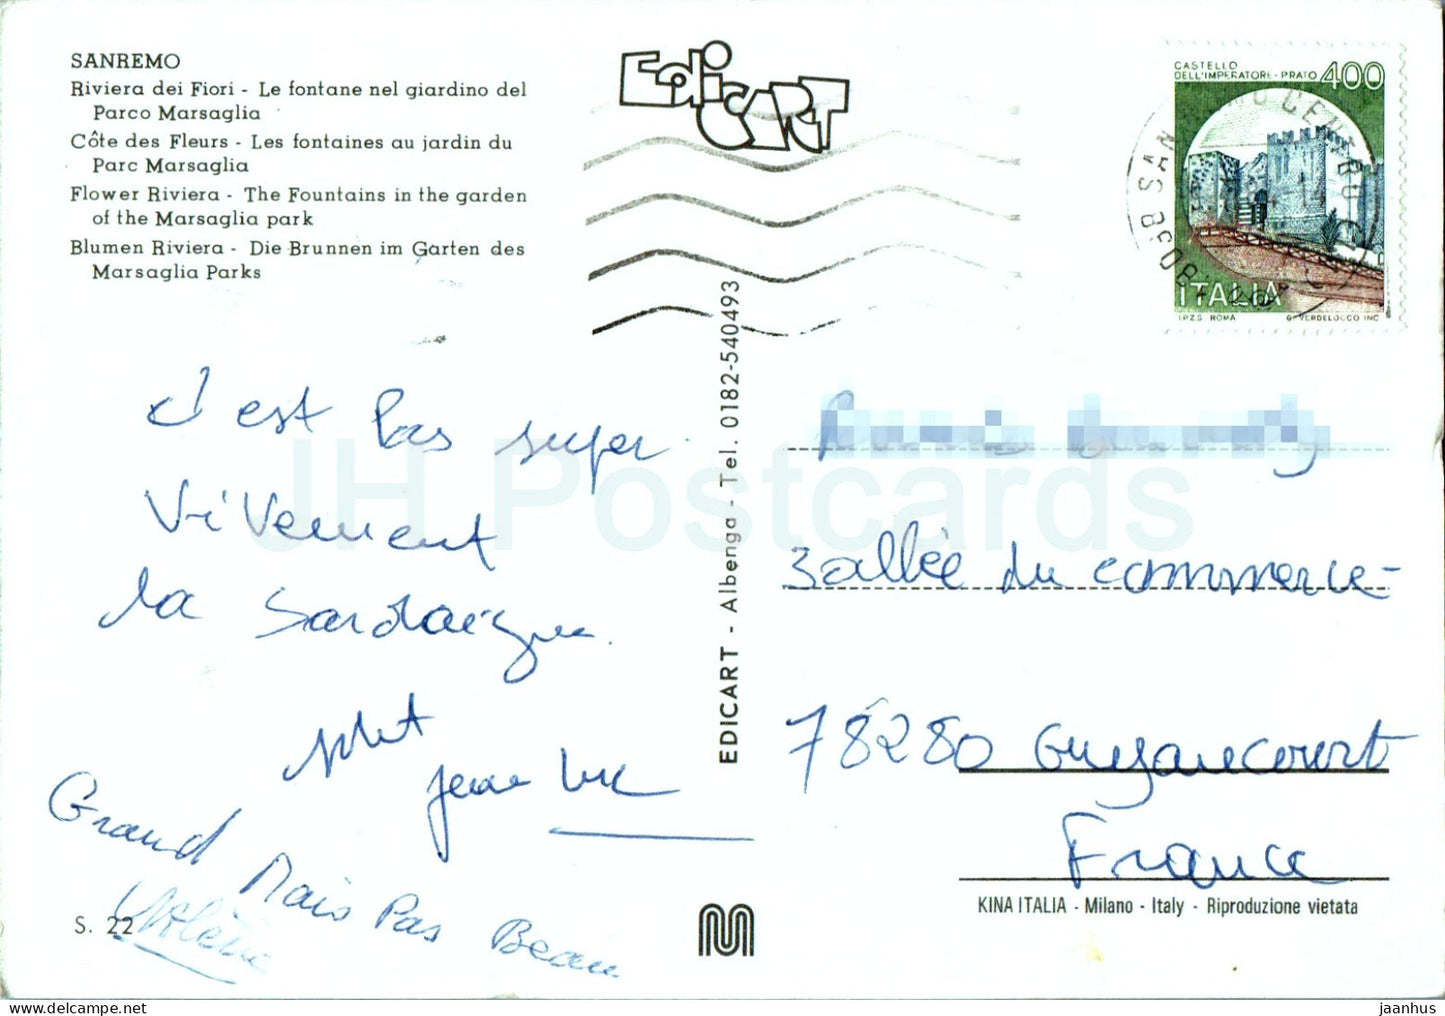 SANREMO
Riviera dei Fiori - Le fontane nel giardino del
Parco Marsaglia
Côte des Fleurs - Les fontaines au jardin du
Parc Marsaglia
Flower Riviera - The Fountains in the garden
of the Marsaglia park
Blumen Riviera - Die Brunnen im Garten des
Marsaglia Parks
EdiCART
CASTELLO
DELL'IMPERATORE - PRATO 400
ITALIA
I.P.Z.S. ROMA G. VERDELOCCO INC.
SAN CENTRO
c'est Pas super
ViVement
la Sardaigne.
jean luc
Grand Mais Pas Beau
S. 22
EDICART - Albenga - Tel. 0182-540493
3 allée du commerce
78280 Guyancourt
France
KINA ITALIA - Milano - Italy - Riproduzione vietata
JH Postcards
jaanhus